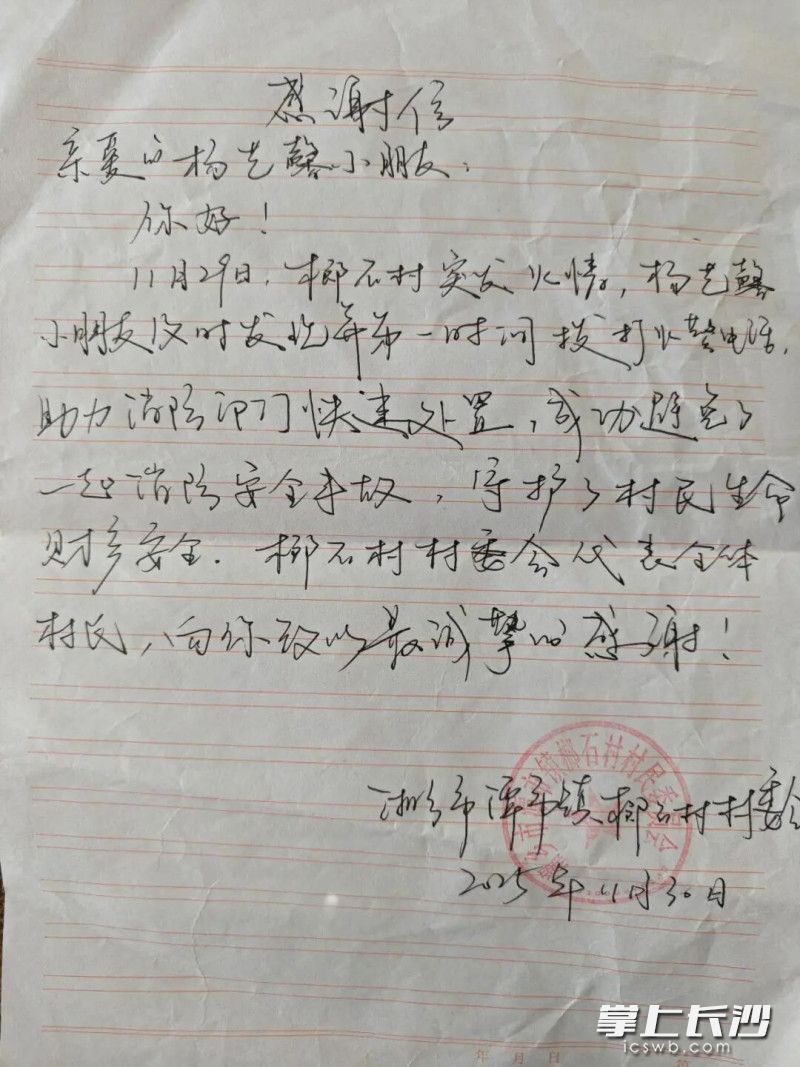 感谢信
亲爱的杨艺馨小朋友:
你好!
11月29日,榔石村突发火情,杨艺馨
小朋友及时发现并第一时间拨打火警电话,
助力消防部门快速处置,成功避免了
一起消防安全事故,守护了村民生命
财产安全.榔石村村委会代表全体
村民,向你致以最诚挚的感谢!
湘乡市潭市镇榔石村村委会
2025年11月30日
湘乡市潭市镇榔石村村民委员会
年 月 日
第
掌上长沙
icswb.com